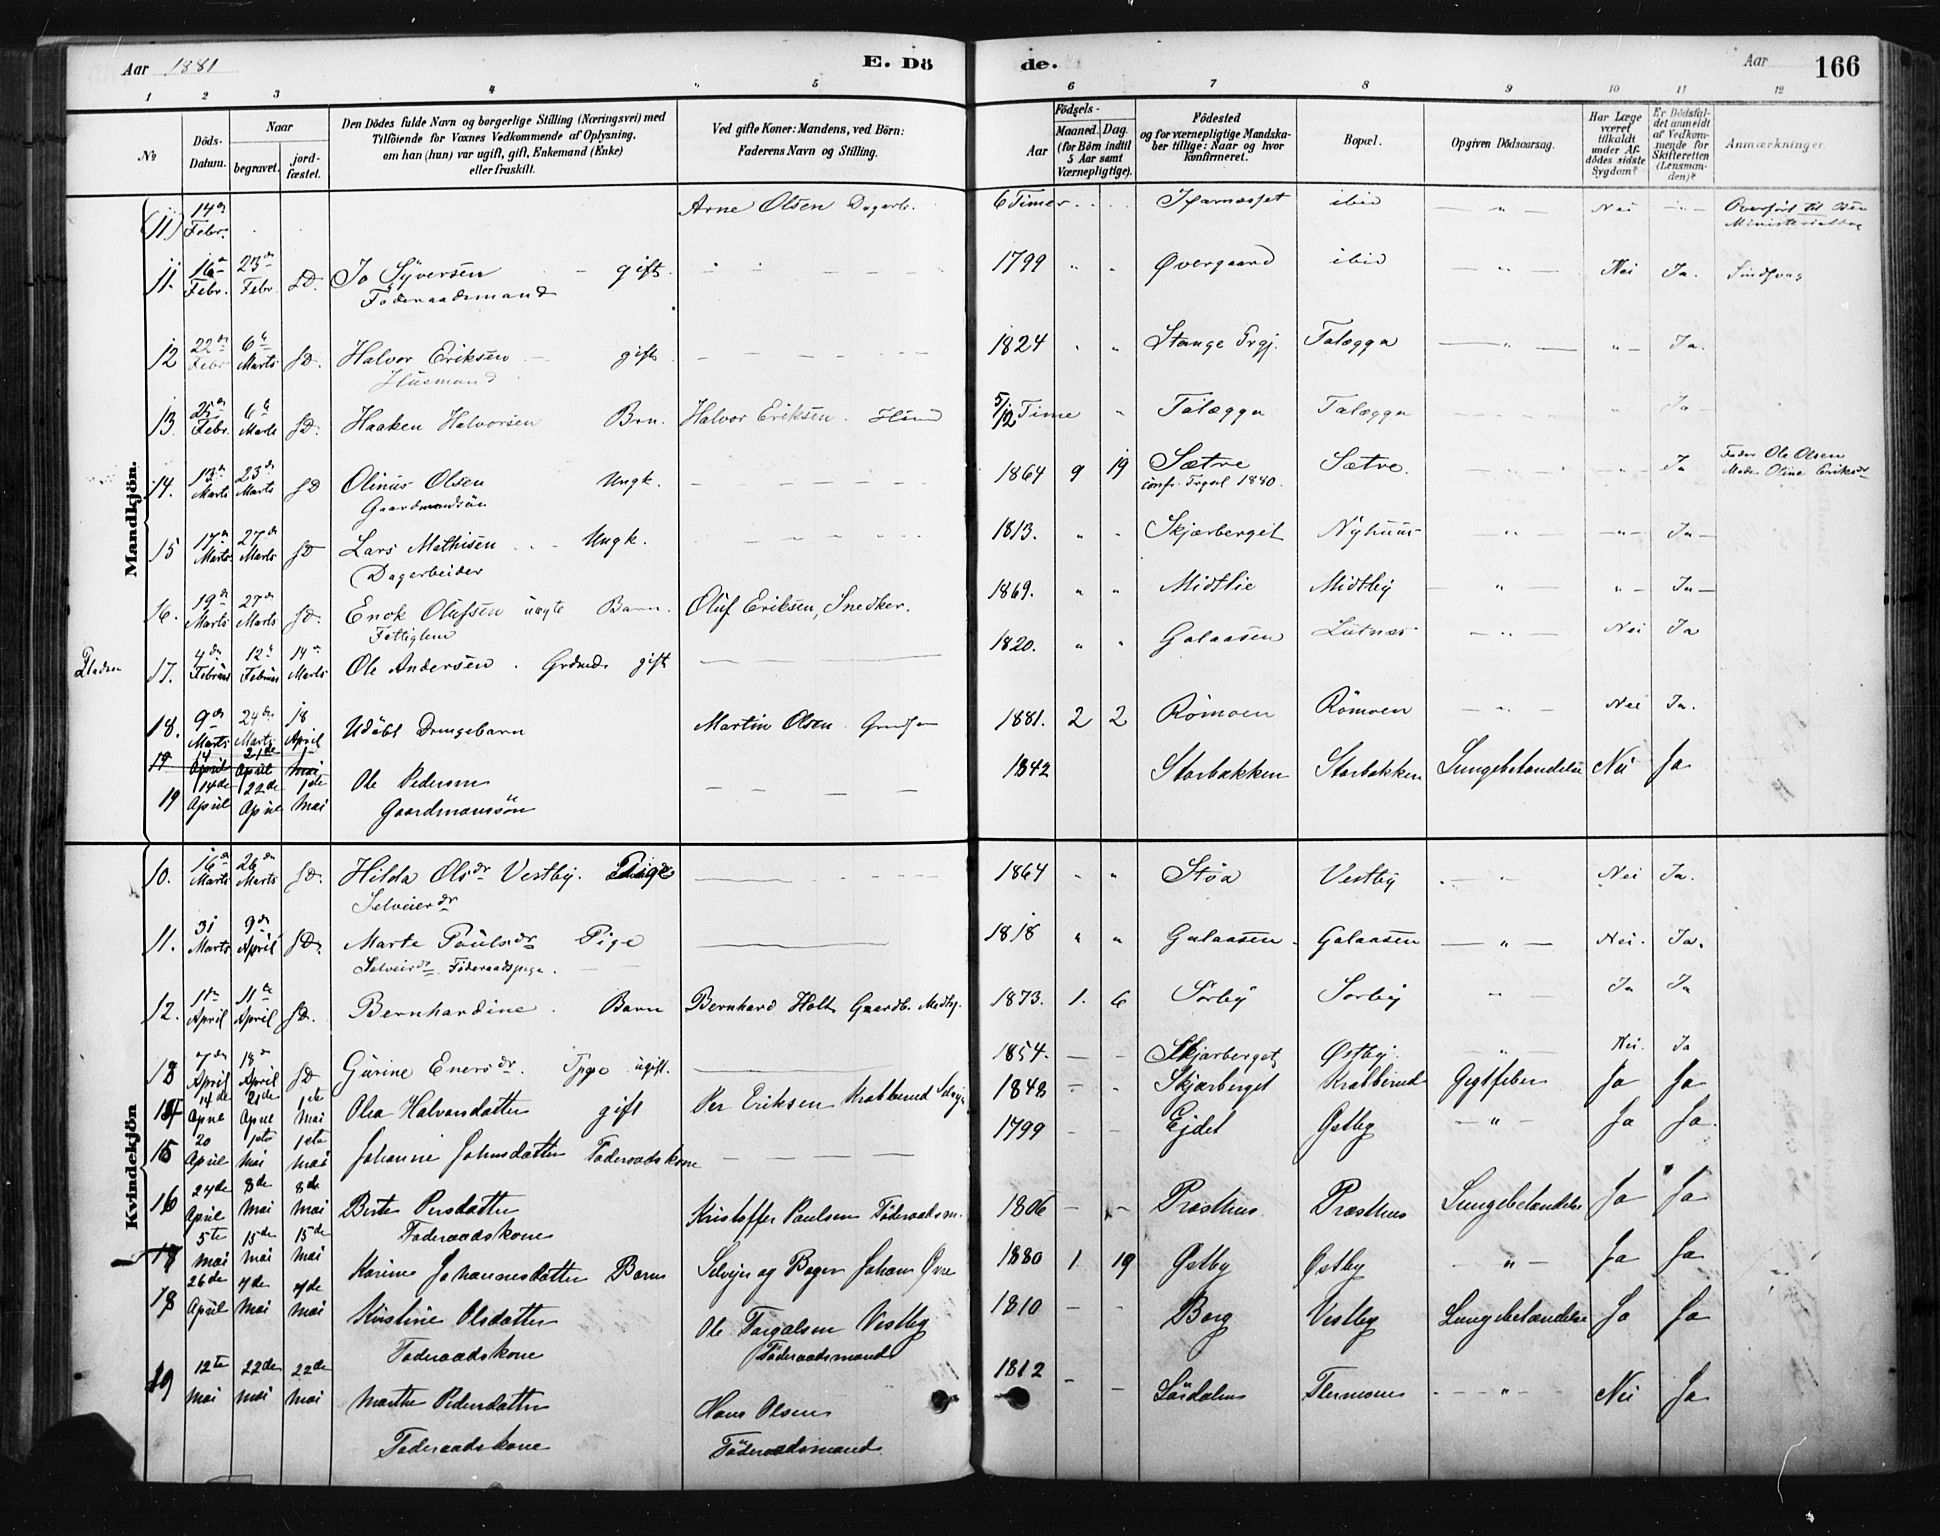 Aar 1881 E. Dö de. Aar 166
1 2 3 4 5 6 7 8 9 10 11 12
No
Döds-Datum.
Naar
begravet. jordfæstet.
Den Dödes fulde Navn og borgerlige Stilling (Næringsvei) med
Tilföiende for Voxnes Vedkommende af Oplysning,
om han (hun) var ugift, gift, Enkemand (Enke)
eller fraskilt.
Ved gifte Koner: Mandens, ved Börn:
Faderens Navn og Stilling.
Födsels-
Aar Maaned. Dag.
(for Börn indtil
5 Aar samt
Værnepligtige).
Födested
og for værnepligtige Mandskaber tillige: Naar og hvor
konfirmeret.
Bopæl.
Opgiven Dödsaarsag.
Har Læge
været
tilkaldt
under Afdödes sidste
Sygdom?
Er Dödsfaldet anmeldt
af Vedkommende for
Skifteretten
(Lensmanden)?
Anmærkninger.
Mandkjön.
(11) 14de Febr. Arne Olsen Dagarb. 6 Timer ibid " Nei
11. 16de Febr. 23de Febr. s.D. Jo Syversen gift 1799 " " Övergaard ibid " Nei Ja.
Föderaadsmand
12 22de Febr 6te Marts s.D. Halvor Eriksen gift. 1824 " " Stange Prgj. Talægga " " Ja.
Husmand
13. 25de Febr. 6te Marts s.D. Haaken Halvorsen Brn. Halvor Eriksen. Hsmd 5/12 Time " Talægga Talægga Ja
14. 13de Marts 23de Marts s.D Olinus Olsen Ungk. 1864 9 19 Sætre Sætre. Ja Fader Ole Olsen
Gaardmandsön conf. Trysil 1880. Moder Oline Eriksdr
15 17de Marts 27de Marts s.D Lars Mathisen Ungk. 1813. " " Skjærberget Nyhuus " " Ja
Dagarbeider
16. 19de Marts 27de Marts s.D. Enok Olufsen uægte Barn. Oluf Eriksen, Snedker. 1869. " " Midtlie Midtby " " Ja
Fattiglem
Pladsen 17. 4de Februar 12te Februar 14de Marts Ole Andersen. Grdmd. gift 1820. " " Galaasen Lutnæs " Nei Ja
18. 9de Marts 24de Marts 18 April Udöbt Drengebarn Martin Olsen 1881. 2 2 Römoen Römoen " Nei Ja.
19 14 April 21de April 1 Mai
19 14de April 22de April 1ste Mai Ole Pedersen 1842 Storbækken Storbækken Lungebetændelse Nei Ja
Gaardmandssön
Kvindekjön
10. 16de Marts 26de Marts s.D. Hilda Olsdr Vestby. Pige 1864 " " Stöa Vestby " Nei Ja.
Selveierdr
11. 31 Marts 9de April s.D. Marte Paulsdr Pige 1818 " " Galaasen Galaasen " Nei. Ja.
Selveierdr. Föderaadspige.
12. 11te April 11te April s.D. Bernhardine. Barn Bernhard Holt Gaardb. 1873. 1. 6 Sörby Sörby " Ja Ja
13 7de April 18de April s.D Gurine Enersdr. ugift. 1854. Skjærberget Östby. " Nei. Ja
14 14de April 21de April 1ste Mai Olea Halvorsdatter gift Per Eriksen Krabberud 1848 Skjærberget Krabberud Gigtfeber Ja Ja
15 20 April 1ste Mai 1ste Mai Johanne Johnsdatter Föderaadskone 1799 Ejdet Östby " Ja Ja.
16 24de April 8de Mai 8de Mai Berte Persdatter Kristoffer Paulsen Föderaadsm. 1806 Præsthus Præsthus Lungebetændelse Ja Ja
Föderaadskone
17 5te Mai 15de Mai 15de Mai Karine Johannesdatter Barn Selvejer og Bager Johan Övre 1880 1 19 Östby Östby " Ja Ja
18 26de April 7de Mai 7de Mai Kristine Olsdatter Ole Vestby 1810 Borg Vestby Lungebetændelse Ja Ja
Föderaadskone Föderaadsmand
19 12te Mai 22de Mai 22de Mai Marthe Pedersdatter Hans Olsen 1812 Flermoen " Nei Ja
Föderaadskone Föderaadsmand.